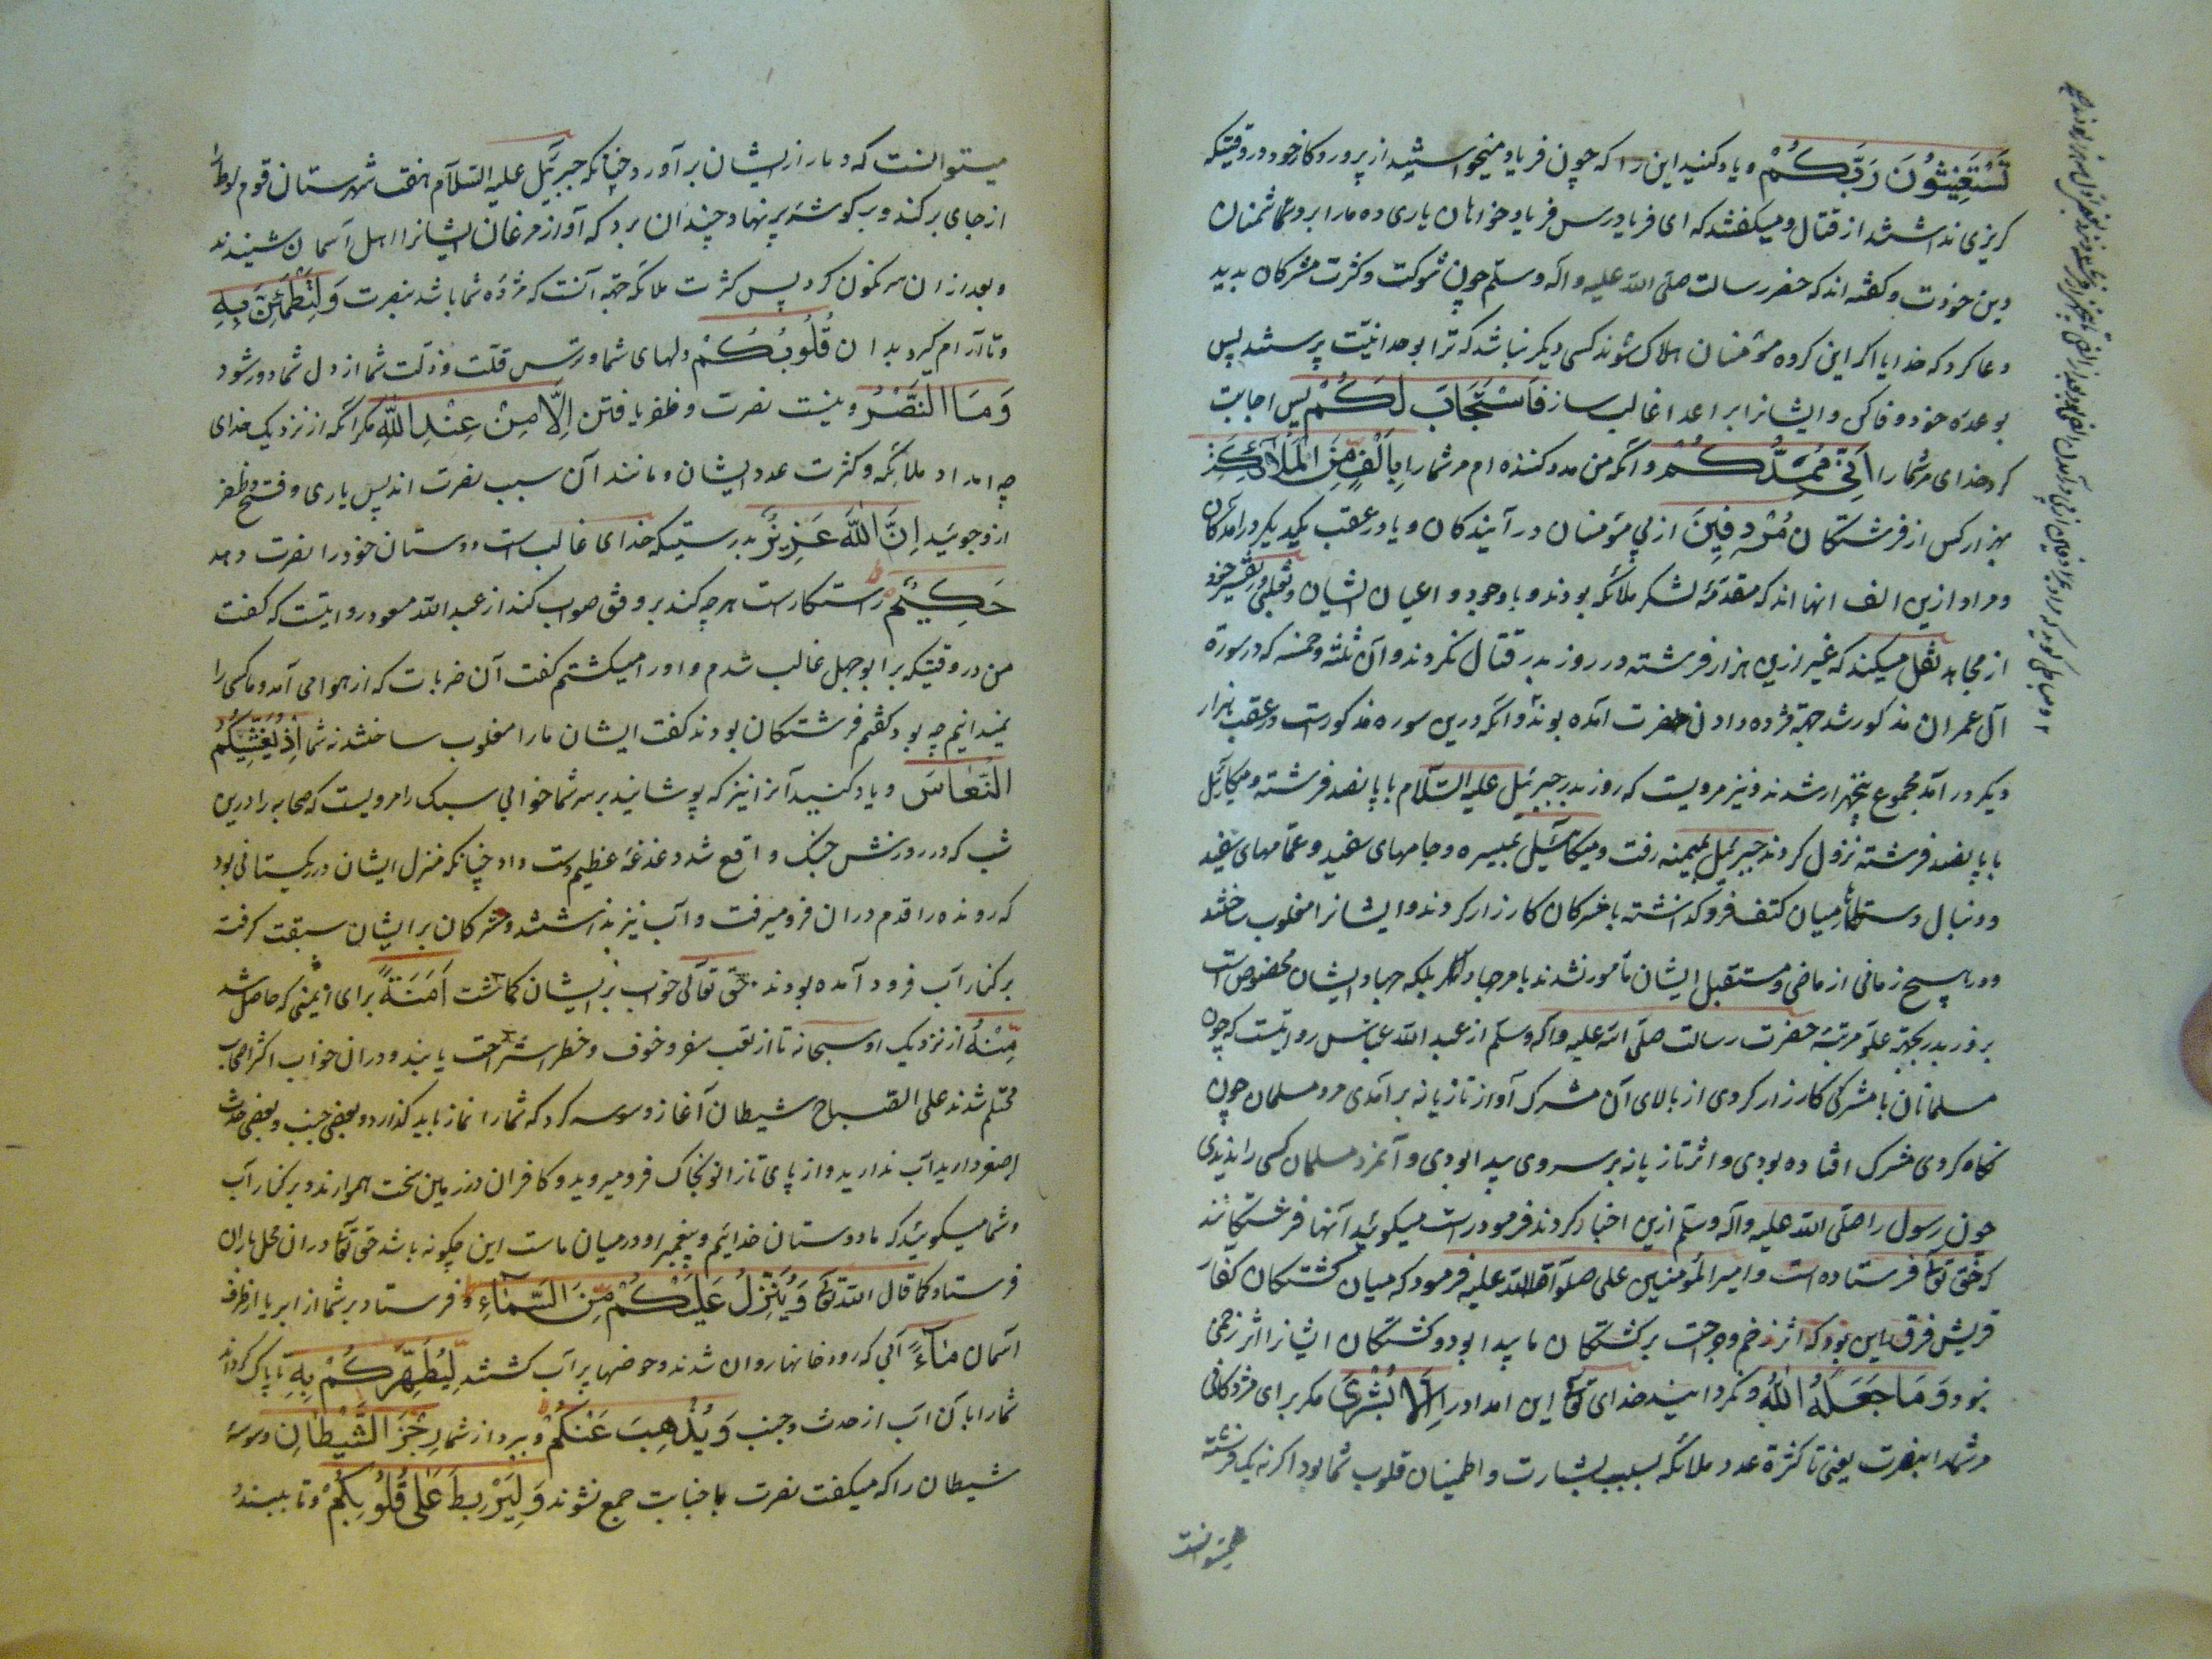 تَسْتَغِيثُونَ رَبَّكُمْ و یاد کنید این را که چون فریاد میخواستید از پروردکار خود در وقتیکه
کریزی نداشتند از قتال و میکفتند که ای فریادرس فریاد خواهان یاری ده ما را بر دشمنان
دین خودت و کفته اند که حضرت رسالت صلّی اللّه علیه و آله و سلّم چون شوکت و کثرت مشرکان بدید
دعا کرد که خدایا اکر این کروه مؤمنان هلاک شوند کسی دیکر نباشد که ترا بوحدانیّت پرستند پس
بوعدهٔ خود وفا کن و ایشانرا بر اعدا غالب ساز فَاسْتَجَابَ لَكُمْ پس اجابت
کرد خدای مر شما را أَنِّي مُمِدُّكُمْ و آنکه من مدد کننده ام مر شما را بِأَلْفٍ مِّنَ الْمَلَائِكَةِ
بهزار کس از فرشتکان مُرْدِفِينَ از پی مؤمنان در آیندکان و یا در عقب یکدیکر در آمدکان
و مراد ازین الف انها اند که مقدمهٔ لشکر ملائکه بودند و یا وجوه و اعیان ایشان و ثعلبی در تفسیر خود
از مجاهد نقل میکند که غیر ازین هزار فرشته در روز بدر قتال نکردند و آن ثلثه و خمسه که در سورهٔ
آل عمران مذکور شد جهة مژده دادن نصرت آمده بودند و آنکه درین سوره مذکورست در عقب هزار
دیکر در آمد مجموع پنجهزار شدند و نیز مرویست که روز بدر جبرئیل علیه السّلام با پانصد فرشته و میکائیل
با پانصد فرشته نزول کردند جبرئیل بمیمنه رفت و میکائیل بمیسره و جامهای سفید و عمامهای سفید
و دنبال دستارها میان کتف فرو کذاشته با مشرکان کارزار کردند و ایشانرا مغلوب ساختند
و در هیچ زمانی از ماضی و مستقبل ایشان مأمور نشدند بامر جهاد مکر بلکه جهاد ایشان مخصوص است
بروز بدر بجهة علوّ مرتبهٔ حضرت رسالت صلّی اللّه علیه و آله و سلّم از عبد اللّه عبّاس روایتست که چون
مسلمانان با مشرکی کارزار کردی از بالای آن مشرک آواز تازیانه بر آمدی مرد مسلمان چون
نکاه کردی مشرک افتاده بودی و اثر تازیانه بر سر وی پیدا بودی و آنمرد مسلمان کسی را ندیدی
چون رسول را صلّی اللّه علیه و آله و سلّم ازین اخبار کردند فرمود راست میکوئید آنها فرشتکانند
که حق تع فرستاده است و امیر المؤمنین علی صلوات اللّه علیه فرمود که میان کشتکان کفّار
قریش فرق این بود که اثر زخم و جراحت بر کشتکان ما پیدا بود و کشتکان ایشانرا اثر زخمی
نبود وَمَا جَعَلَهُ اللَّهُ و نکردانید خدای تع این امداد را إِلَّا بُشْرَىٰ مکر برای مژدکانی
مر شما را بنصرت یعنی تا کثرة عدد ملائکه بسبب بشارت و اطمینان قلوب شما بود اکر نه یک فرشته
میتوانست
میتوانست که دمار از ایشان بر آورد چنانکه جبرئیل علیه السّلام هفت شهرستان قوم لوط را
از جای برکند و بر کوشهٔ پر نهاد و چندان برد که آواز مرغان ایشانرا اهل آسمان شنیدند
و بعد از ان سرنکون کرد پس کثرت ملائکه جهة آنست که مژدهٔ شما باشد بنصرت وَلِتَطْمَئِنَّ بِهِ
و تا آرام کیرد بدان قُلُوبُكُمْ دلهای شما و ترس قلّت و ذلّت شما از دل شما دور شود
وَمَا النَّصْرُ و نیست نصرت و ظفر یافتن إِلَّا مِنْ عِنْدِ اللَّهِ مکر آنکه از نزدیک خدای
چه امداد ملائکه و کثرت عدد ایشان و مانند آن سبب نصرت اند پس یاری و فتح و ظفر
ازو جوئید إِنَّ اللَّهَ عَزِيزٌ بدرستیکه خدای غالب است دوستان خود را نصرت دهد
حَكِيمٌ راستکارست هر چه کند بر وفق صواب کند از عبد اللّه مسعود روایتست که کفت
من در وقتیکه بر ابو جهل غالب شدم و او را میکشتم کفت آن ضربات که از هوا می آمد و ما کسی را
نمیدانیم چه بود کفتم فرشتکان بودند کفت ایشان ما را مغلوب ساختند نه شما إِذْ يُغَشِّيكُمُ
النُّعَاسَ و یاد کنید آنرا نیز که پوشانید بر سر شما خوابی سبک را مرویست که صحابه را درین
شب که در روزش جنک واقع شد دغدغهٔ عظیم دست داد چنانکه منزل ایشان در ریکستانی بود
که رونده را قدم در ان فرو میرفت و آب نیز نداشتند و مشرکان بر ایشان سبقت کرفته
بر کنار آب فرود آمده بودند حق تعالی خواب بر ایشان کماشت أَمَنَةً برای ایمنی که حاصل شد
مِّنْهُ از نزدیک او سبحانه تا از تعب سفر و خوف و خطر استراحت یابند و در ان خواب اکثر اصحاب
محتلم شدند علی الصّباح شیطان آغاز وسوسه کرد که شما را نماز باید کذارد و بعضی جنب و بعضی حدث
اصغر دارید آب ندارید و از پای تا زانو بخاک فرو میروید و کافران در زمین سخت هموارند و بر کنار آب
و شما میکوئید که ما دوستان خدائیم و پیغمبر او در میان ماست این چکونه باشد حق تع در ان محل باران
فرستاد کما قال اللّه تع وَيُنَزِّلُ عَلَيْكُمْ مِّنَ السَّمَاءِ و فرستاد بر شما از ابر یا از طرف
آسمان مَاءً آبی که رودخانها روان شدند و حوضها پر آب کشتند لِّيُطَهِّرَكُمْ بِهِ تا پاک کرداند
شما را بآن آب از حدث و جنب وَيُذْهِبَ عَنْكُمْ و ببرد از شما رِجْزَ الشَّيْطَانِ وسوسهٔ
شیطان را که میکفت نصرت با جنابت جمع نشوند وَلِيَرْبِطَ عَلَىٰ قُلُوبِكُمْ و تا ببندد